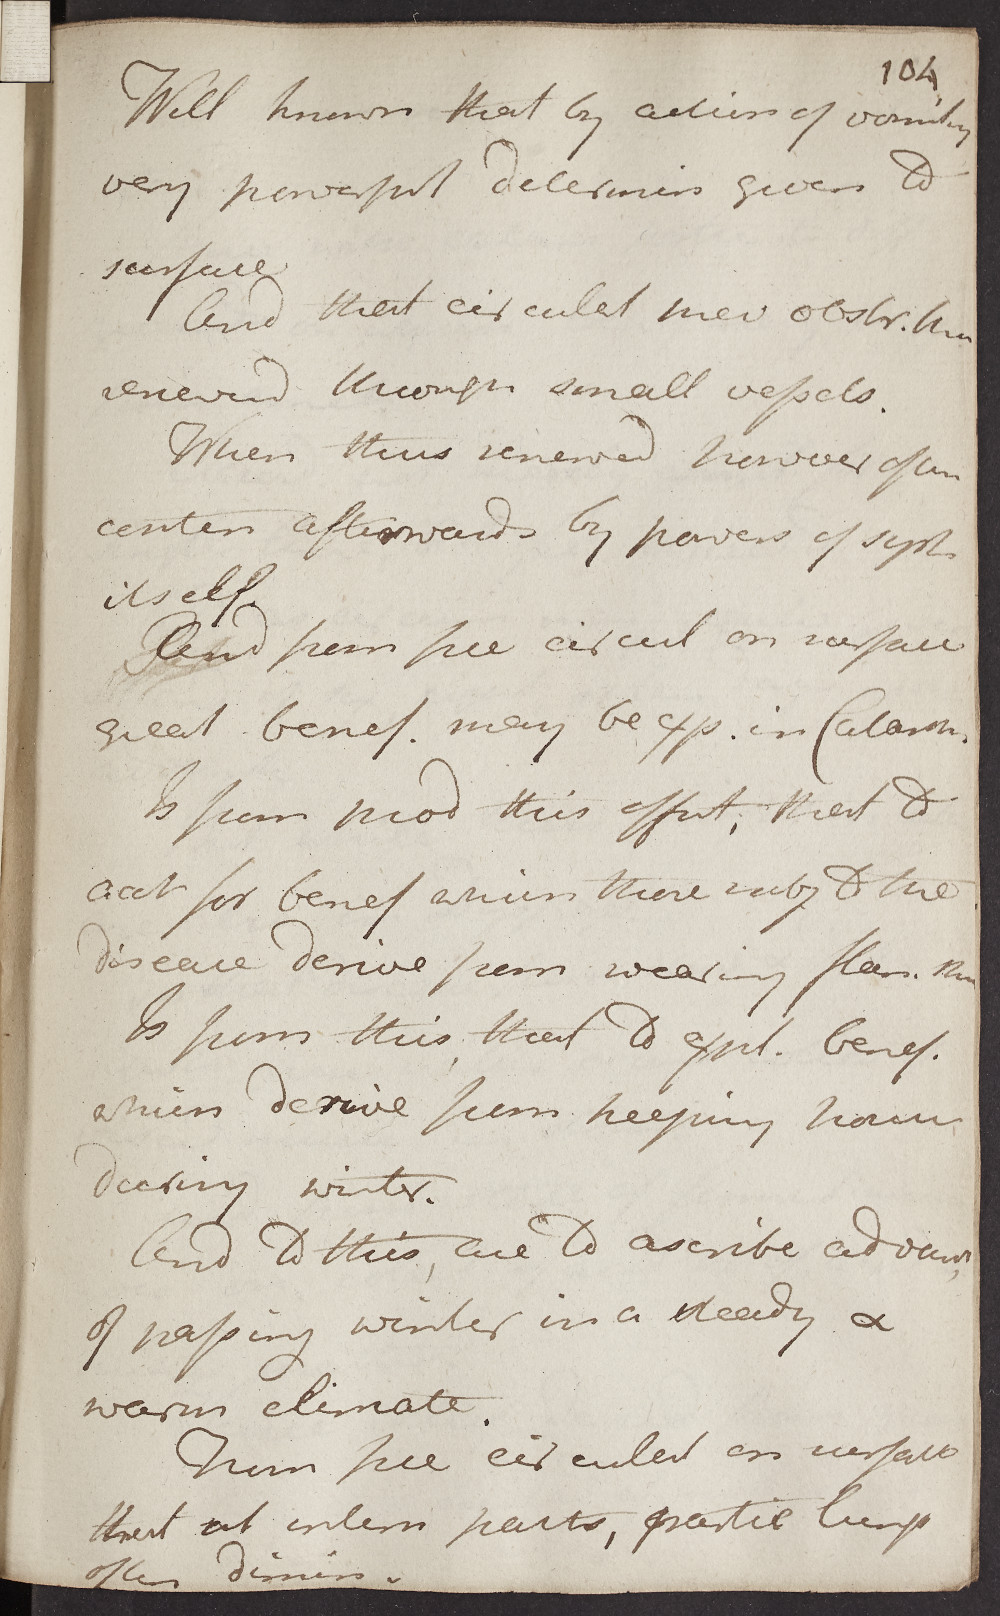 104
Well known that by action of vomitg
very powerful determin given to
surface
And that circulat prev obstr. thus
renewed through small vessels.
When thus renewed however often
contin afterwards by powers of syst
itself.
And from free circul on surface
great benef. may be exp. in Catarrh.
Is from prod this effect, that to
act for benef which those subj to the
disease derive from wearing flan.
Is from this, that to expl. benef.
which derive from keeping house
during winter.
And to this, are to ascribe advant,
of passing winter in a steady &
warm climate.
From free circulat on surface
that at intern parts, partic lungs
often dimin.